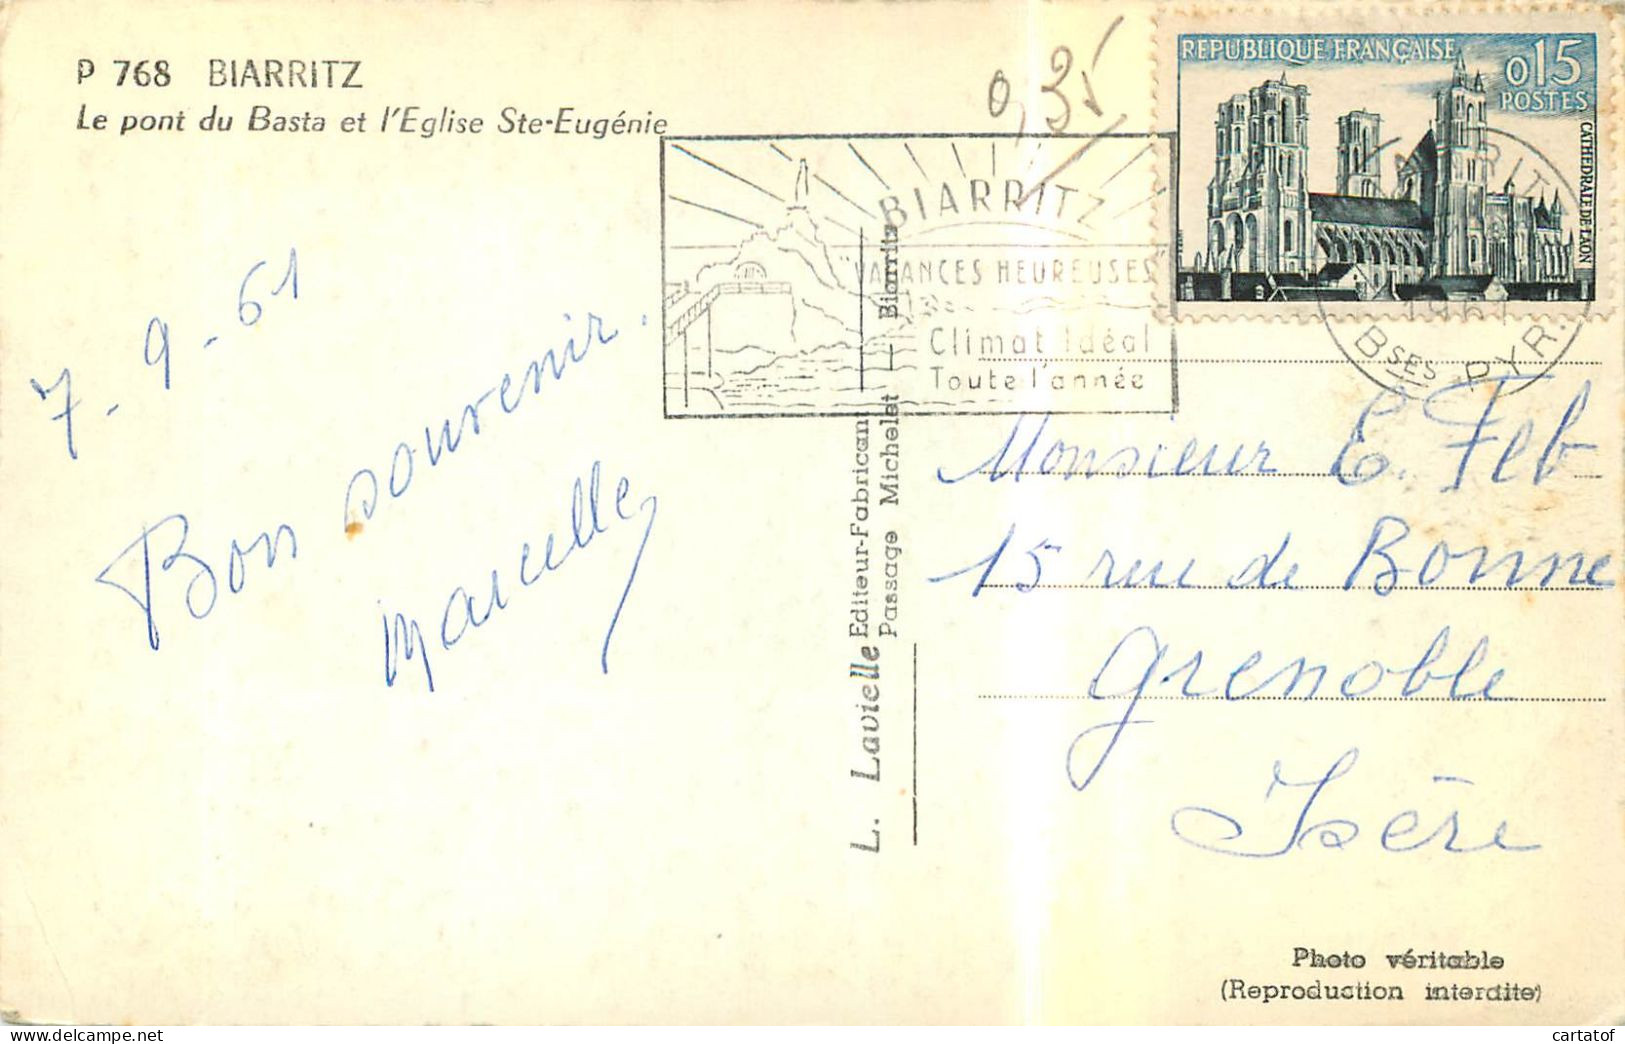 P 768 BIARRITZ
Le pont du Basta et l'Eglise Ste-Eugénie
0,35
REPUBLIQUE FRANÇAISE
0,15
POSTES
CATHEDRALE DE LAON
BIARRITZ
"VACANCES HEUREUSES"
Climat Idéal
Toute l'année
Bses PYR.
7-9-61
Bon souvenir.
Marcelle
L. Lavielle Editeur-Fabricant
Passage Michelet — Biarritz
Monsieur E. Feb
15 rue de Bonne
Grenoble
Isère
Photo véritable
(Reproduction interdite)
cartatof